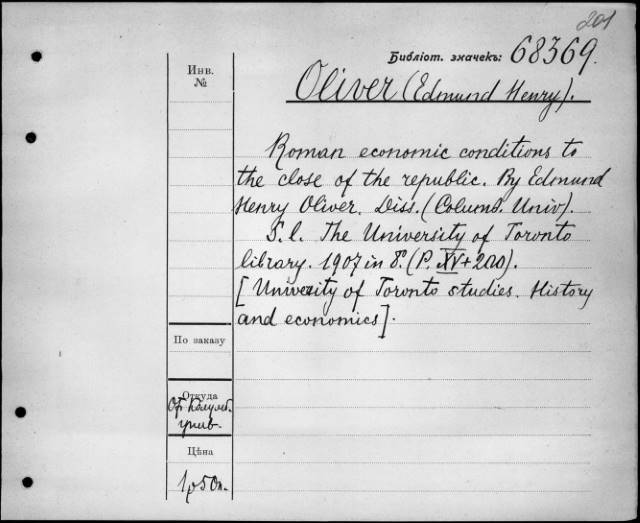 201
Библіот. значекъ: 68369.
Инв.
№
Oliver (Edmund Henry).
Roman economic conditions to
the close of the republic. By Edmund
Henry Oliver. Diss. (Columb. Univ).
S. l. The University of Toronto
library. 1907 in 8°. (P. XV+200).
[University of Toronto studies. History
and economics].
По заказу
Откуда
От Колумб.
унив.
Цѣна
1р50к.